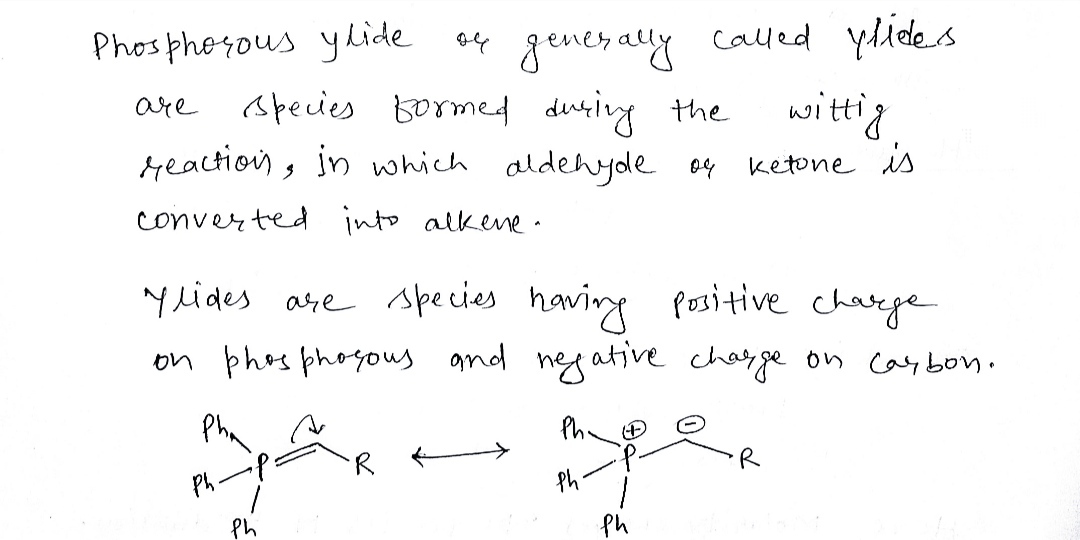 Phosphorous ylide or generally called ylides
are species formed during the wittig
reaction, in which aldehyde or ketone is
converted into alkene.
Ylides are species having positive charge
on phosphorous and negative charge on carbon.
Ph
Ph P R
Ph
Ph ⊕ ⊖
Ph P R
Ph